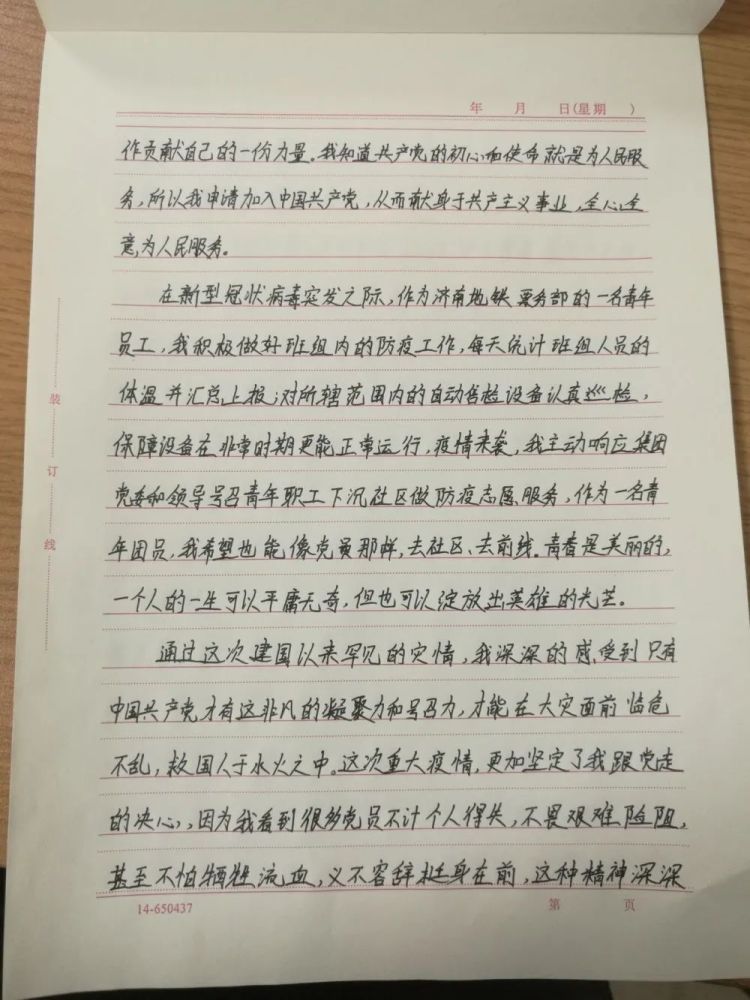 年 月 日(星期 )
作贡献自己的一份力量。我知道共产党的初心和使命就是为人民服
务,所以我申请加入中国共产党,从而献身于共产主义事业,全心全
意,为人民服务。
在新型冠状病毒突发之际,作为济南地铁票务部的一名青年
员工,我积极做好班组内的防疫工作,每天统计班组人员的
体温并汇总上报;对所辖范围内的自动售检设备认真巡检,
保障设备在非常时期更能正常运行,疫情来袭,我主动响应集团
党委和领导号召青年职工下沉社区做防疫志愿服务,作为一名青
年团员,我希望也能像党员那样,去社区、去前线。青春是美丽的,
一个人的一生可以平庸无奇,但也可以绽放出英雄的光芒。
通过这次建国以来罕见的灾情,我深深的感受到只有
中国共产党才有这非凡的凝聚力和号召力,才能在大灾面前临危
不乱,救国人于水火之中。这次重大疫情,更加坚定了我跟党走
的决心,因为我看到很多党员不计个人得失,不畏艰难险阻,
甚至不怕牺牲流血,义不容辞挺身在前,这种精神深深
装
订
线
14-650437 第 页